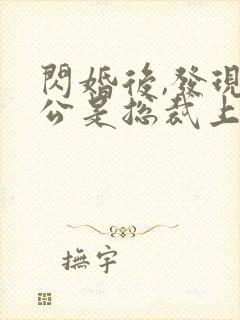 閃婚後,發現
公是總裁上
撫宇